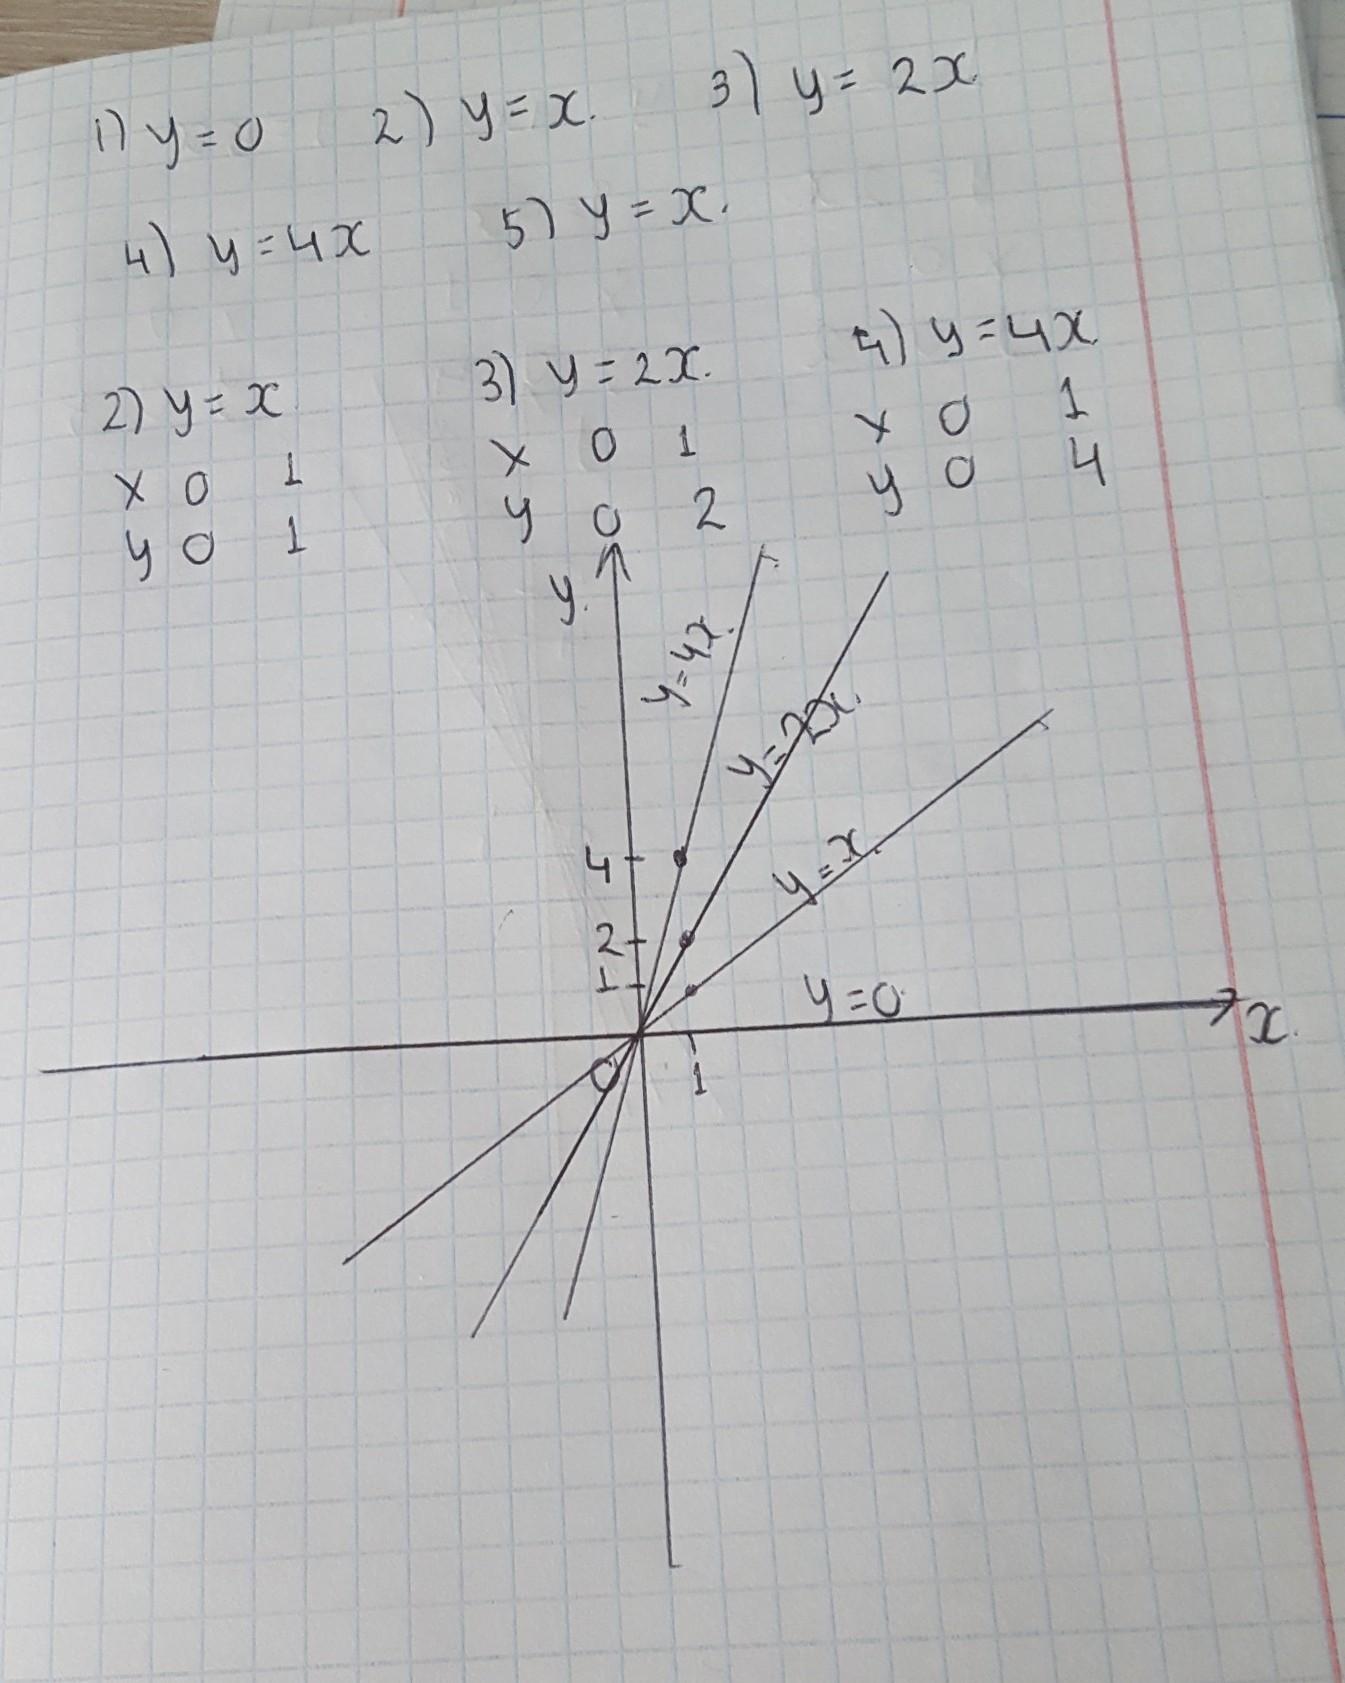 1) y = 0 2) y = x. 3) y = 2x
4) y = 4x 5) y = x.
2) y = x 3) y = 2x. 4) y = 4x
x 0 1 x 0 1 x 0 1
y 0 1 y 0 2 y 0 4
y.
y = 4x.
y = 2x.
y = x.
4
2
1
y = 0
x.
0
1